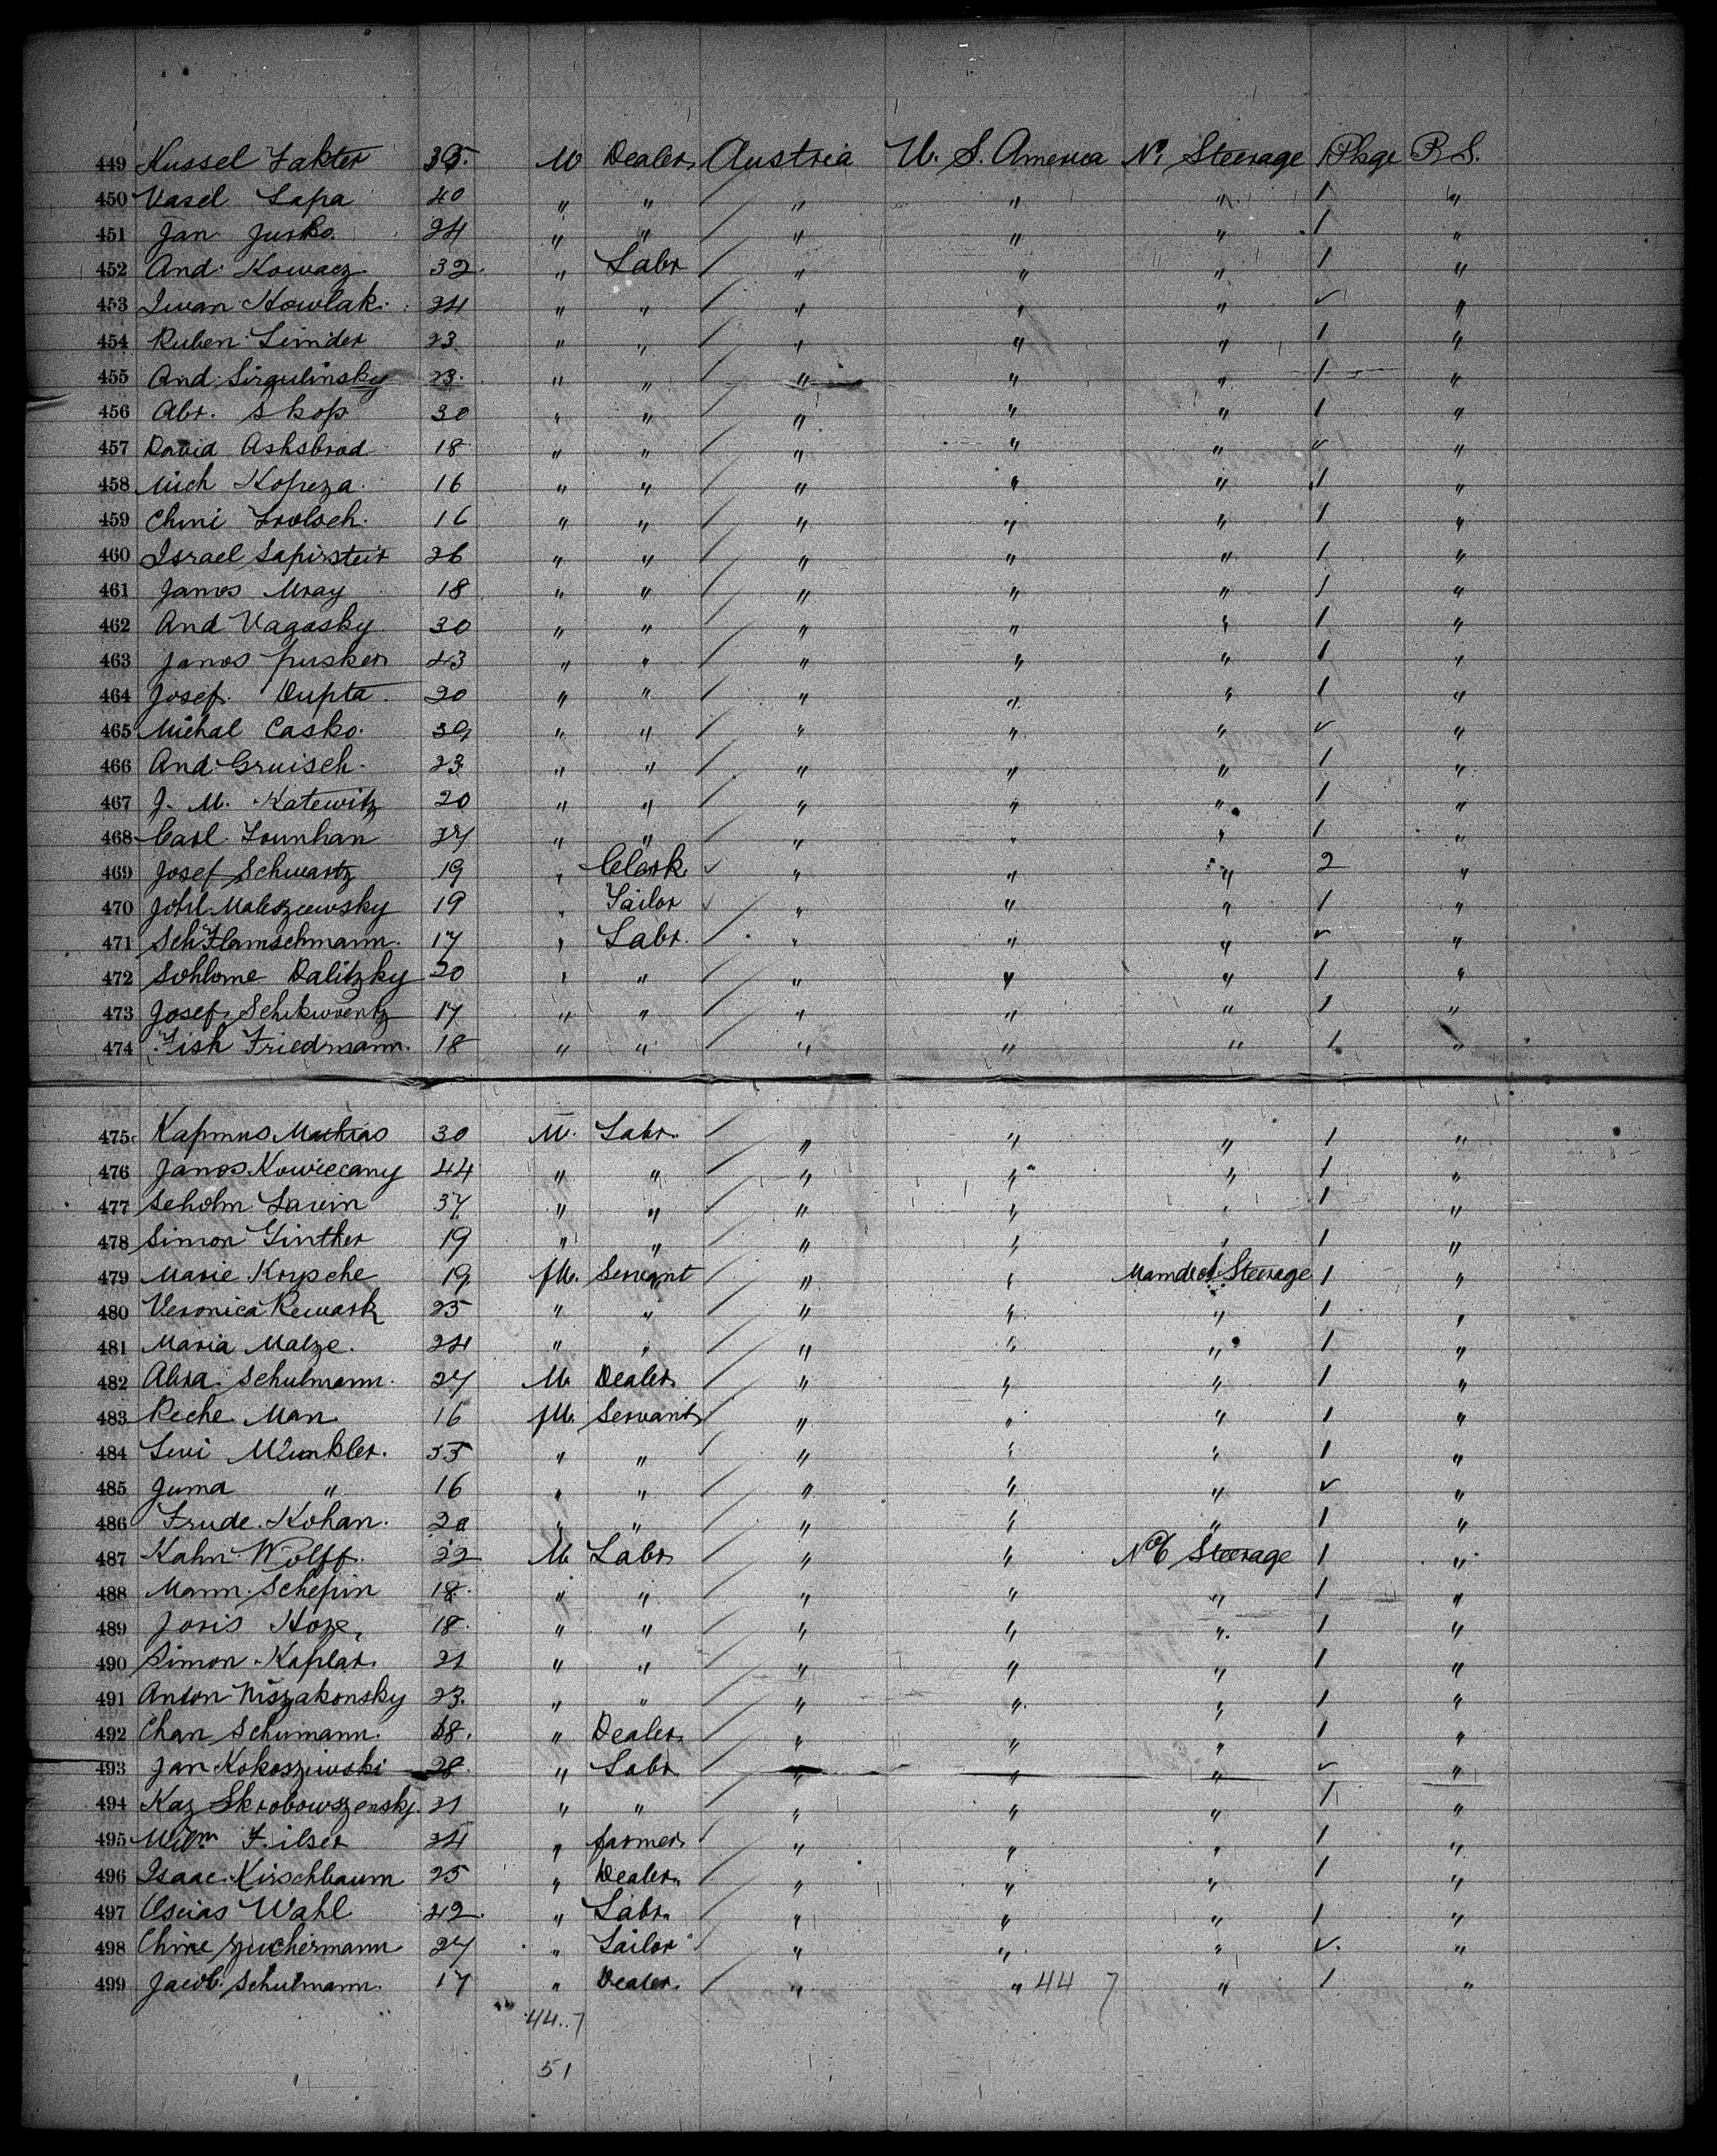 449 Kussel Fakter 35. M Dealer, Austria U. S. America No. 1 Steerage 1 Pkge P. S.
450 Vasel Lapa 40 " " / " " " 1 "
451 Jan Jusko. 24 " " / " " " 1 "
452 And. Kowacz. 32. " Labr / " " " 1 "
453 Iwan Kowlak. 24 " " / " " " ✓ "
454 Ruben Linder 23. " " / " " " 1 "
455 And. Sirgulinsky 23. " " / " " " 1 "
456 Abr. Skop 30 " " / " " " 1 "
457 David Ashsbrod 18 " " / " " " ✓ "
458 Mich Kopeza. 16 " " / " " " 1 "
459 Chini 16 " " / " " " 1 "
460 Israel Sapirstein 26 " " / " " " 1 "
461 Janos Mray 18 " " / " " " 1 "
462 And Vagasky 30 " " / " " " 1 "
463 Janos Pusker 43 " " / " " " 1 "
464 Josef. Dupta. 20 " " / " " " 1 "
465 Michal Casko. 39 " " / " " " ✓ "
466 And. Gruisch. 23 " " / " " " 1 "
467 J. M. Katewitz 20 " " / " " " 1 "
468 Carl Tounhan 27 " " / " " " 1 "
469 Josef Schwartz 19 " Clerk. ✓ " " " 2 "
470 Maleszewsky 19 " Tailor ✓ " " " 1 "
471 Sch Flamschmann. 17 " Labr. / " " " ✓ "
472 Sohlome Dalitzky 20 " " / " " " 1 "
473 Josef. Schikworntz 17 " " / " " " 1 "
474 Fish Friedmann. 18 " " / " " " 1 "
475 Kapmus Mathias 30 M. Labr. / " " " 1 "
476 Janos Kowiecany 44 " " / " " " 1 "
477 Scholm Lavin 37 " " / " " " 1 "
478 Simon Ginther 19 " " / " " " 1 "
479 Marie Krysche 19 fM. Servant / " " Steerage 1 "
480 Veronica Rewark 25 " " / " " " 1 "
481 Maria Malze. 24 " " / " " " 1 "
482 Abra. Schulmann. 27 M. Dealer / " " " 1 "
483 Reche Man 16 fM. Servant / " " " 1 "
484 Levi Winkler. 55 " " / " " " 1 "
485 Juma " 16 " " / " " " ✓ "
486 Frude. Kohan. 20 " " / " " " 1 "
487 Kahn Wolff. 22 M Labr / " " No 6 Steerage 1 "
488 Mann. Schepin 18. " " / " " " 1 "
489 Joris Koze, 18. " " / " " " 1 "
490 Simon Kaplar. 21 " " / " " " 1 "
491 Anton Niszakonsky 23. " " / " " " 1 "
492 Chan Schumann. 38. " Dealer / " " " 1 "
493 Jan Kokoszewski 28. " Labr. / " " " ✓ "
494 Kaz Skrobowszensky. 21 " " / " " " 1 "
495 Wilm Filser 24 " farmer / " " " 1 "
496 Isaac Kirschbaum 25 " Dealer. / " " " 1 "
497 Oseias Wahl 42. " Labr. / " " " 1 "
498 Chine Zuchermann 27 " Tailor / " " " ✓. "
499 Jacob. Schulmann. 17 " Dealer. / " " 44 7 " 1 "
44..7
51